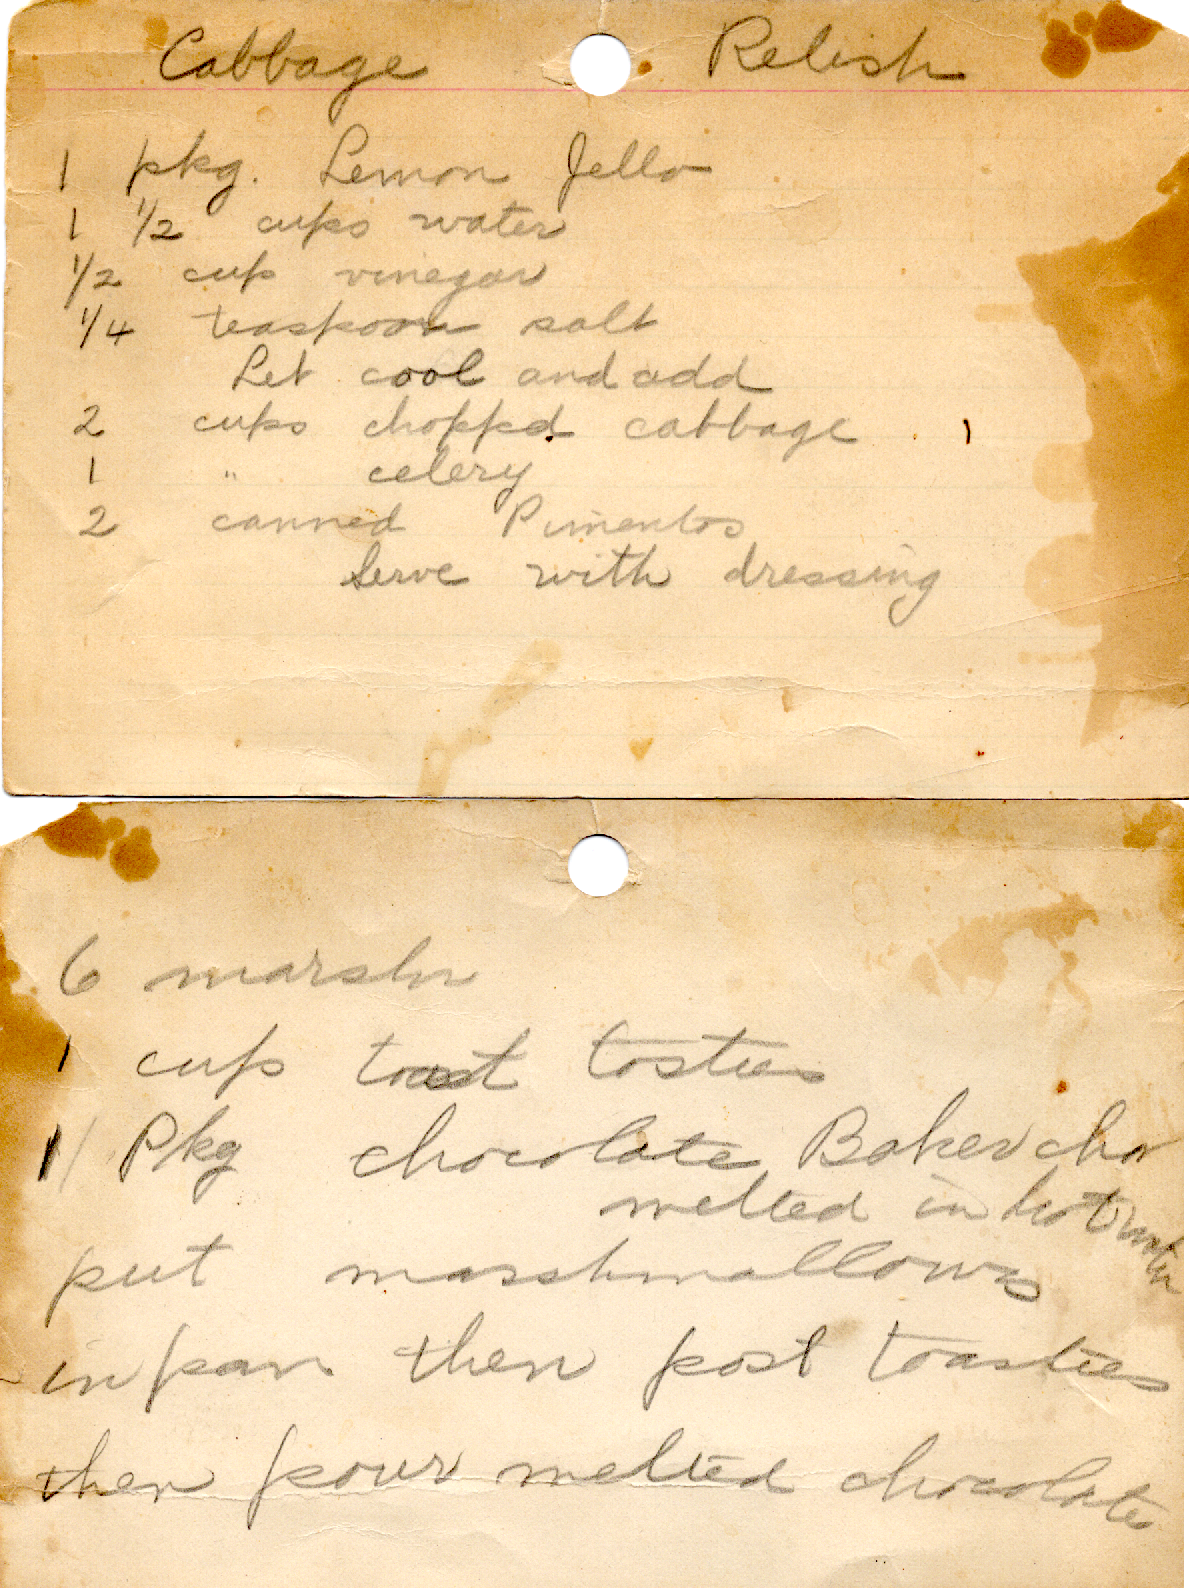 Cabbage Relish
1 pkg. Lemon Jello
1 1/2 cups water
1/2 cup vinegar
1/4 teaspoon salt
Let cool and add
2 cups chopped cabbage
1 " celery
2 canned Pimentos
Serve with dressing
6 marsh
1 cup toast tosties
1 Pkg chocolate Baker cho
melted in hot water
put marshmallows
in pan then post toasties
then pour melted chocolate